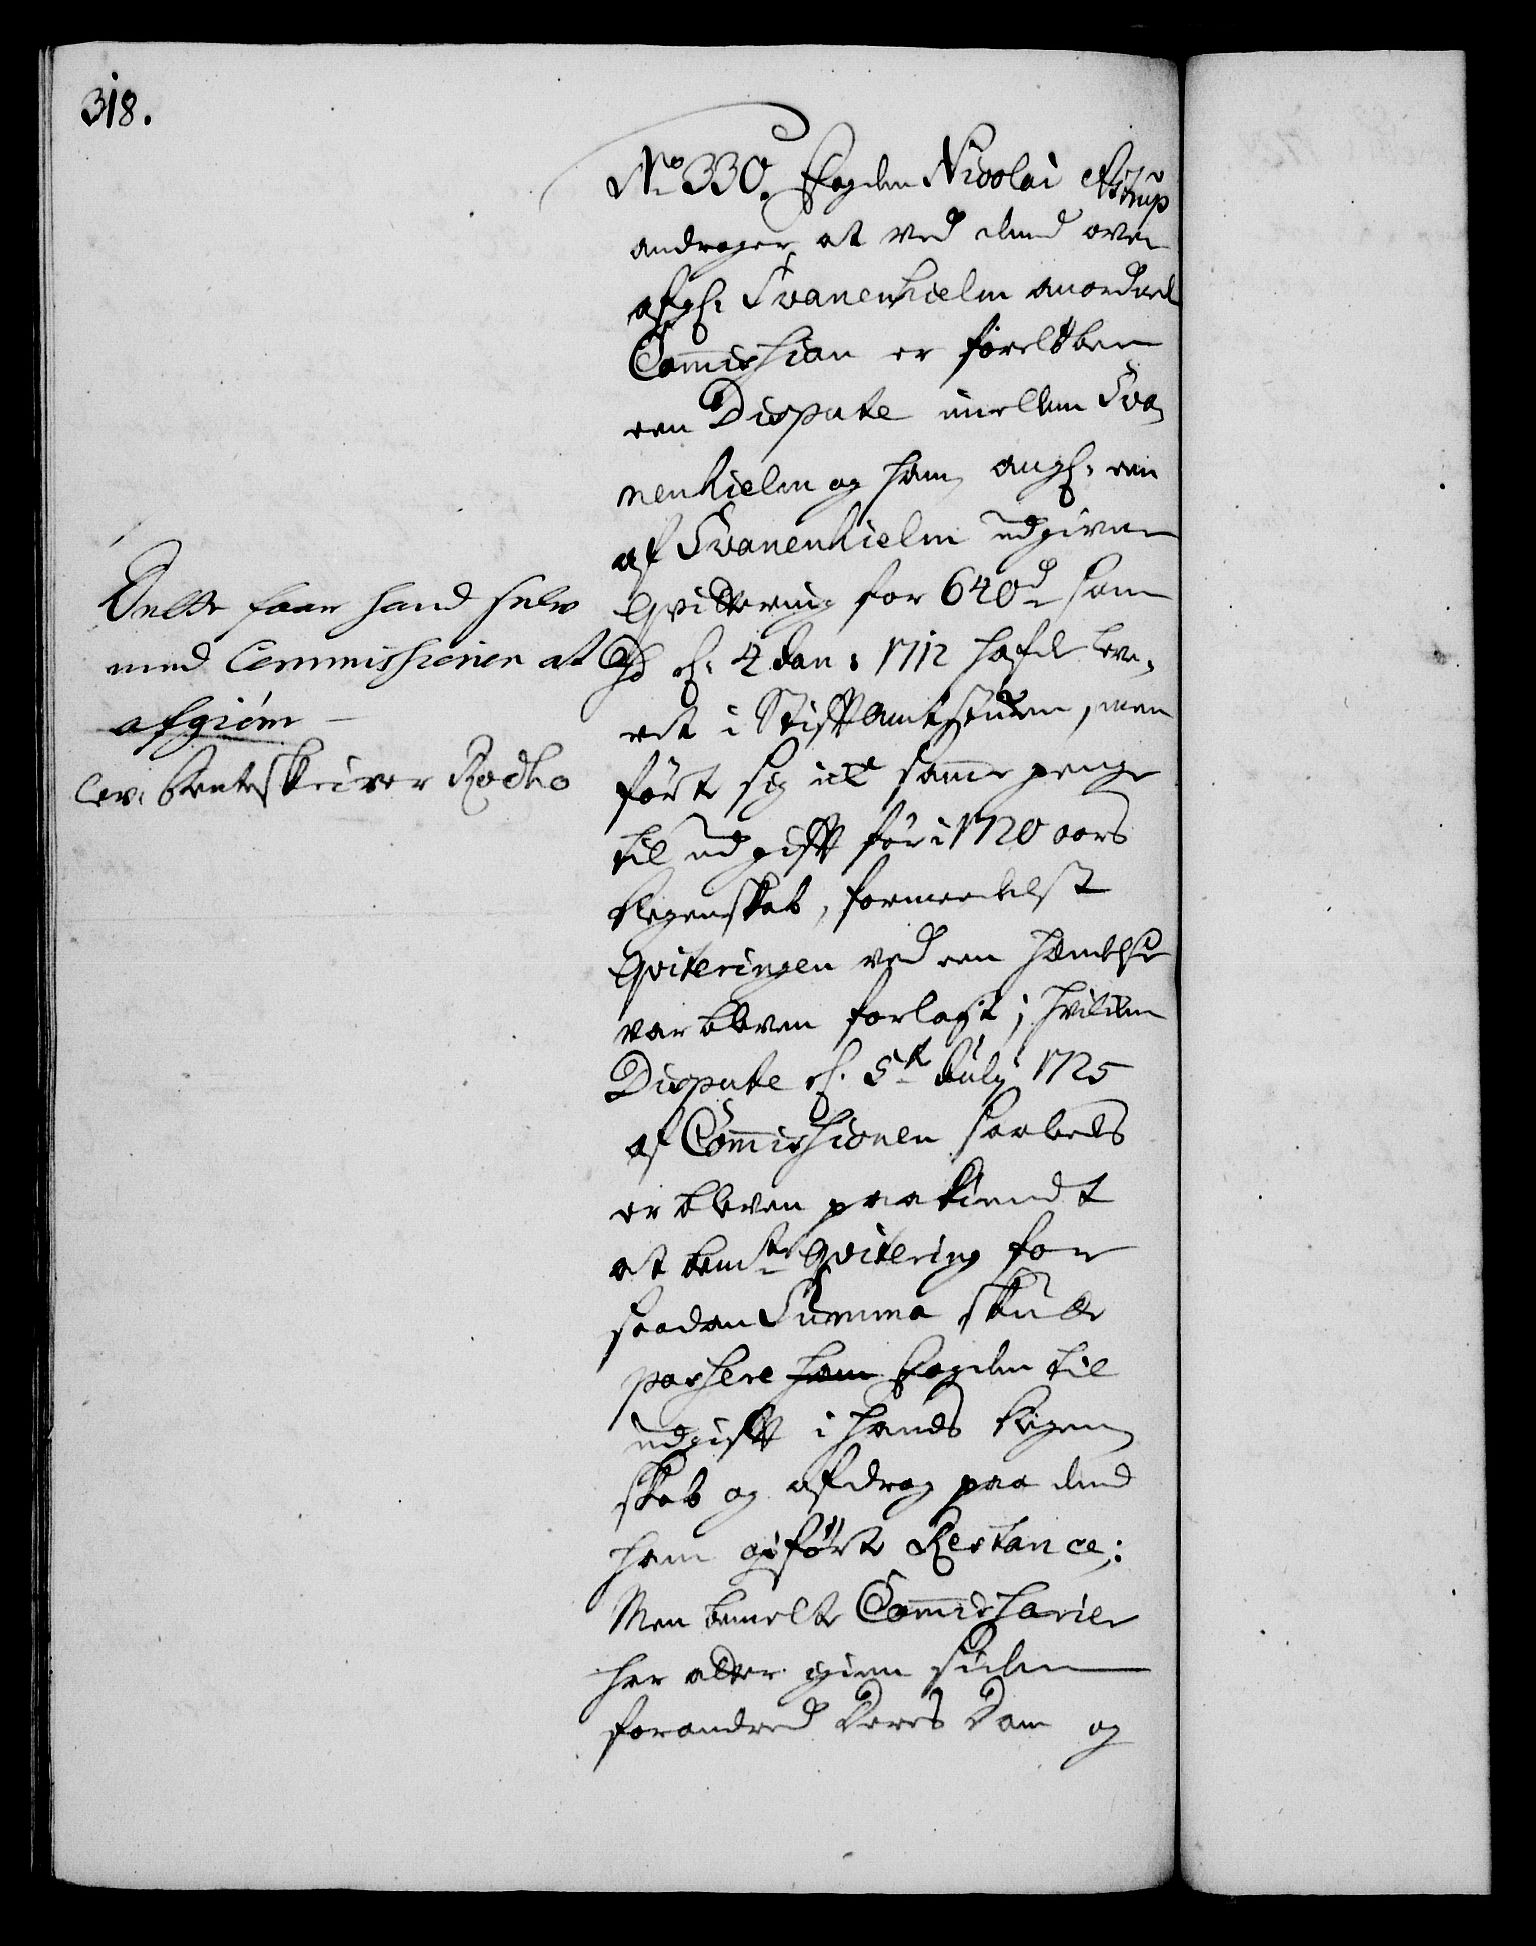 318.
No 330. Fogden Nicolai Astrup
andrager, at ved dend over
afg: Svanenhielm anordned
Commishion er foreløben
een Dispute imellem Sva,
nenhielm og ham, angf: een
af Svanenhielm udgiven
Qvittering for 640 d som
hd d: 2 Jan: 1712 hafde leve,
ret i Stiftamtstuen, men
ført sig ice samme penge
til udgift før i 1720 aars
Regenskab, formedelst
Qviteringen ved een hændelse
var bleven forlagt; hvilken
Dispute d: 5te July 1725
af Commishionen saaledes
er bleven paakiendt
at bemte Qvitering for
saadan Summa skulle
pashere ham Fogden til
udgift i hands Regen,
skab og afdrag paa dend
ham giførte Restance;
Men bemelte Commisharier
har atter igien siden
forandred deres Dom og
Dette faar hand selv
med Commissionen at
afgiöre
lev: Renteskriver Rodho